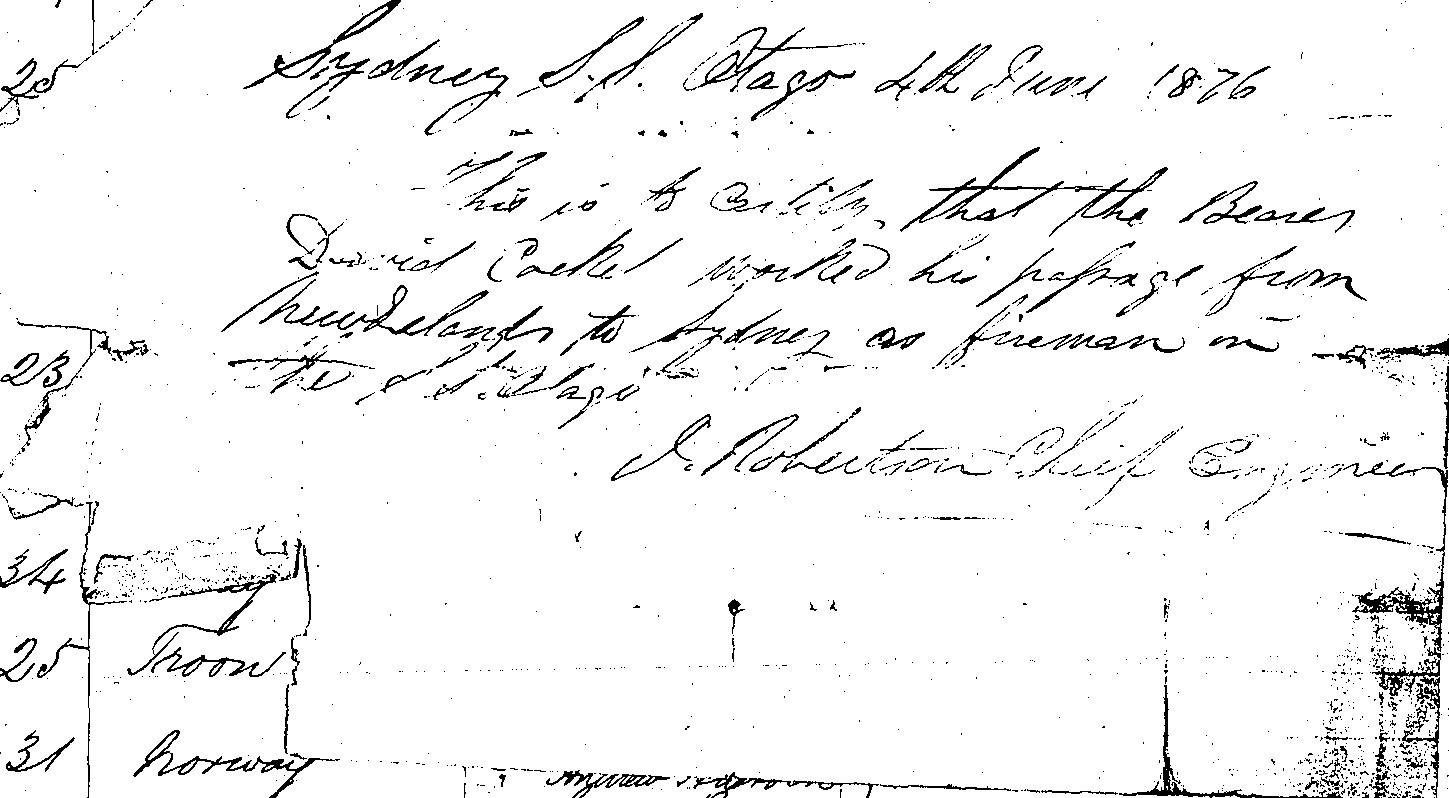 25
Sydney S.S. Otago 4th June 1876
This is to Certify, that the Bearer
David Cockel worked his passage from
New Zelands to Sydney as fireman on
23
the S St. Otago
J. Robertson Chief Engineer
34
25 Troon
31 Norway
Andrew